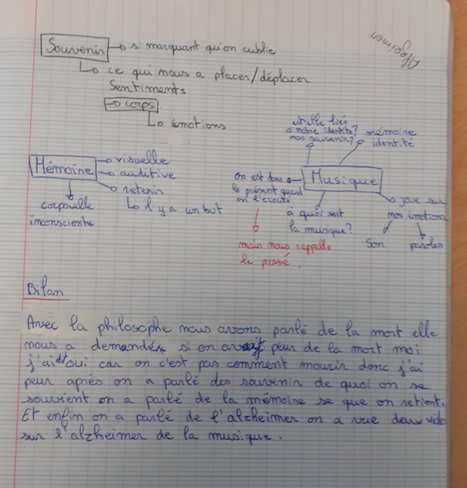 Alzeimer
Souvenir → si marquant qu'on oublie
→ ce qui nous a placer/déplacer
Sentiments
→ corps
→ émotions
Mémoire
visuelle
auditive
retenir
→ il y a un but
corporelle
inconsciente
est-elle liée
à notre identité?
nos souvenir?
mémoire
identité
Musique
on est dans
le présent quand
on l'écoute
mais nous rappelle
le passé.
à quoi sert
la musique?
joue sur
nos émotions
Son
paroles
Bilan
Avec la philosophe nous avons parlé de la mort elle
nous a demandé si on avait peur de la mort moi
j'ai dit oui car on c'est pas comment mourir donc j'ai
peur après on a parlé des souvenir de quoi on se
souvient on a parlé de la mémoire se que on retient.
Et enfin on a parlé de l'alzheimer on a vue deux vidéo
sur l'alzheimer de la musique.